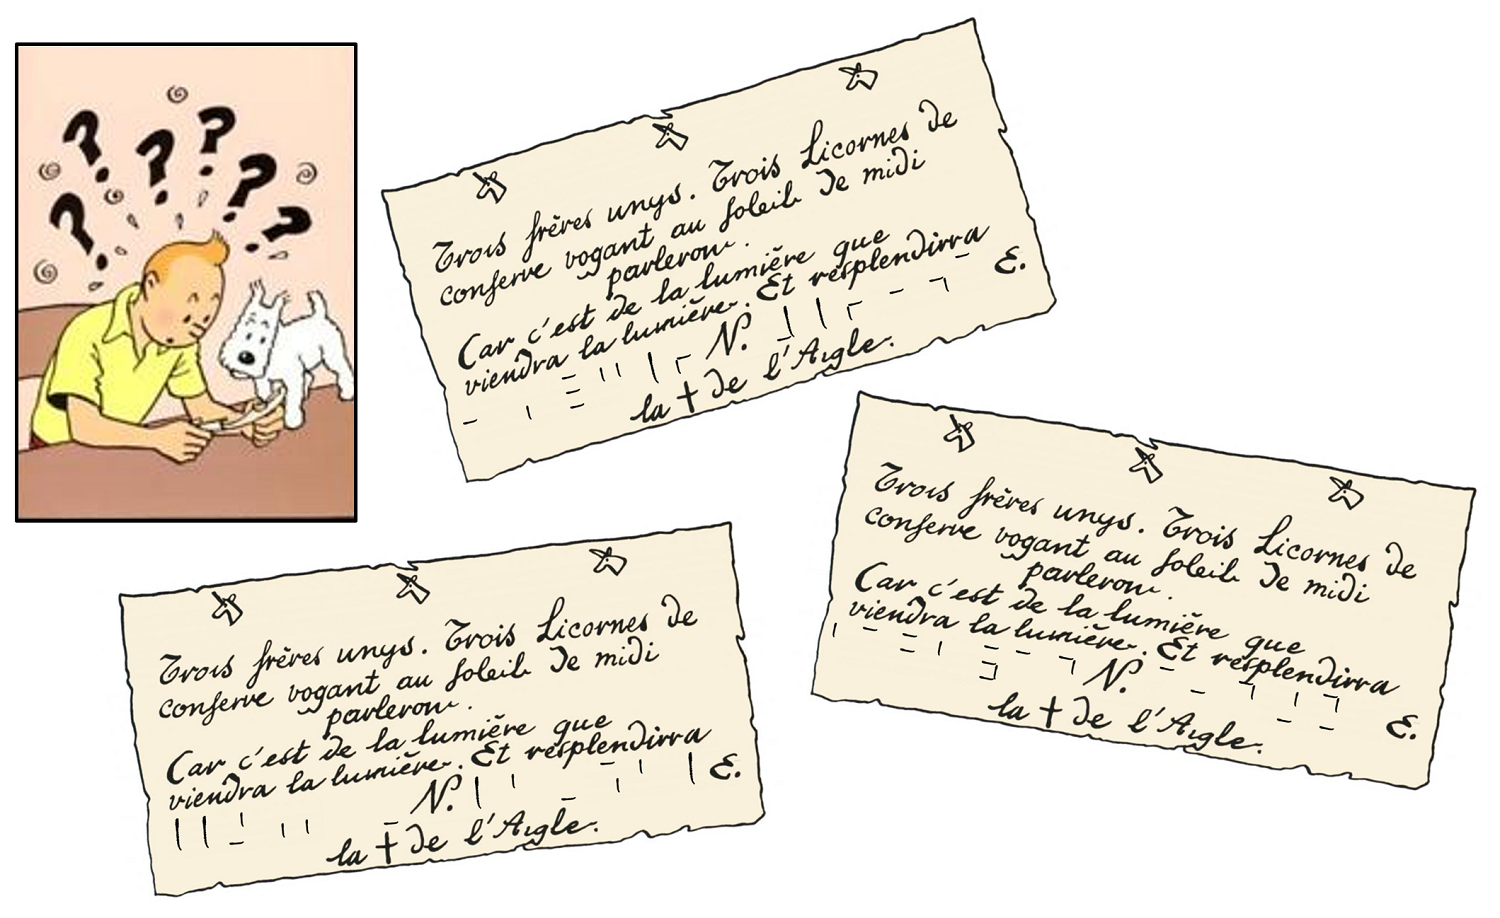 ? ? ? ? ? ?
Trois frères unys. Trois Licornes de
conserve vogant au soleil de midi
parleront.
Car c'est de la lumière que
viendra la lumière. Et resplendira
N. E.
la † de l'Aigle.
Trois frères unys. Trois Licornes de
conserve vogant au soleil de midi
parleront.
Car c'est de la lumière que
viendra la lumière. Et resplendira
N. E.
la † de l'Aigle.
Trois frères unys. Trois Licornes de
conserve vogant au soleil de midi
parleront.
Car c'est de la lumière que
viendra la lumière. Et resplendira
N. E.
la † de l'Aigle.